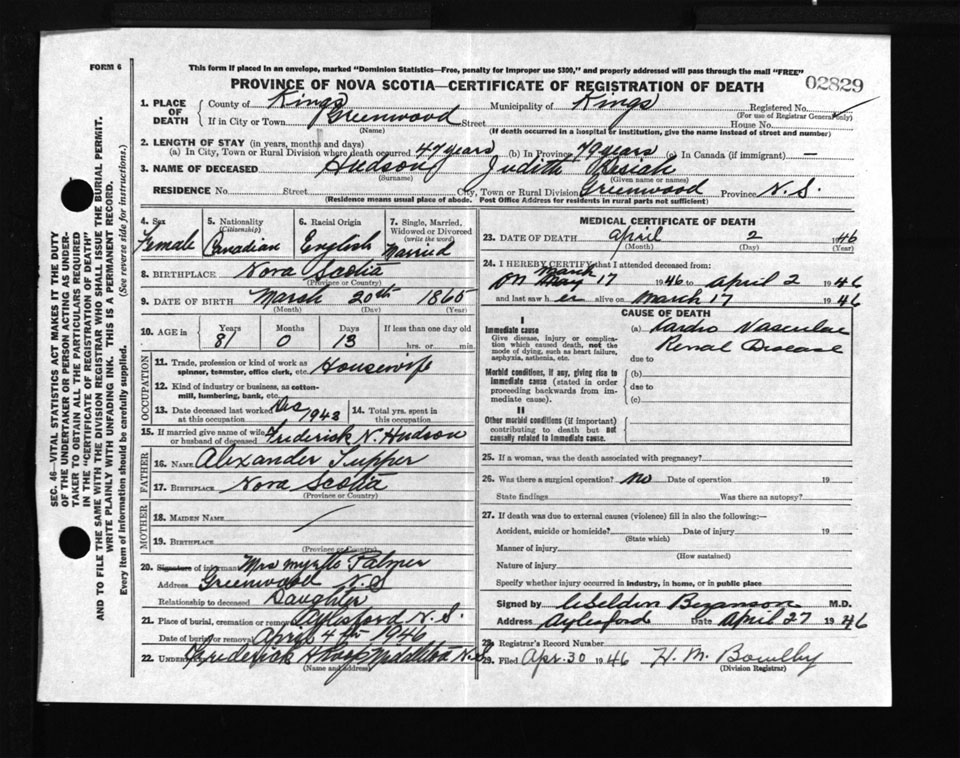 FORM 6
This form if placed in an envelope, marked "Dominion Statistics—Free, penalty for improper use $300," and properly addressed will pass through the mail "FREE"
PROVINCE OF NOVA SCOTIA—CERTIFICATE OF REGISTRATION OF DEATH
02829
1. PLACE OF DEATH
County of Kings
Municipality of Kings
Registered No.
(For use of Registrar General only)
If in City or Town Greenwood Street House No.
(Name) (If death occurred in a hospital or institution, give the name instead of street and number)
2. LENGTH OF STAY (in years, months and days)
(a) In City, Town or Rural Division where death occurred 47 years (b) in Province 79 years (c) In Canada (if immigrant) —
3. NAME OF DECEASED Hudson Judith
(Surname) (Given name or names)
RESIDENCE No. Street City, Town or Rural Division Greenwood Province N.S.
(Residence means usual place of abode. Post Office Address for residents in rural parts not sufficient)
4. Sex Female
5. Nationality (Citizenship) Canadian
6. Racial Origin English
7. Single, Married, Widowed or Divorced (write the word) Married
8. BIRTHPLACE Nova Scotia
(Province or Country)
9. DATE OF BIRTH March 20th 1865
(Month) (Day) (Year)
10. AGE in Years 81 Months 0 Days 13 If less than one day old
hrs. or min.
OCCUPATION
11. Trade, profession or kind of work as spinner, teamster, office clerk, etc. Housewife
12. Kind of industry or business, as cotton-mill, lumbering, bank, etc.
13. Date deceased last worked at this occupation Dec 1943
14. Total yrs. spent in this occupation
15. If married give name of wife or husband of deceased Frederick N. Hudson
FATHER
16. NAME Alexander Tupper
17. BIRTHPLACE Nova Scotia
(Province or Country)
MOTHER
18. MAIDEN NAME
19. BIRTHPLACE
(Province or Country)
20. Signature of informant Mrs Myrtle Palmer
Address Greenwood N.S
Relationship to deceased Daughter
21. Place of burial, cremation or removal Aylesford N.S.
Date of burial or removal April 4th 1946
22. UNDERTAKER Frederick Middleton N.S
(Name and address)
MEDICAL CERTIFICATE OF DEATH
23. DATE OF DEATH April 2 1946
(Month) (Day) (Year)
24. I HEREBY CERTIFY that I attended deceased from:
March
on May 17 1946 to April 2 1946
and last saw her alive on March 17 1946
CAUSE OF DEATH
I
Immediate cause
Give disease, injury or complication which caused death, not the mode of dying, such as heart failure, asphyxia, asthenia, etc.
(a) Cardio Vascular
Renal Disease
due to
Morbid conditions, if any, giving rise to immediate cause (stated in order proceeding backwards from immediate cause).
(b)
due to
(c)
II
Other morbid conditions (if important) contributing to death but not causally related to immediate cause.
25. If a woman, was the death associated with pregnancy?
26. Was there a surgical operation? No Date of operation 19
State findings Was there an autopsy?
27. If death was due to external causes (violence) fill in also the following:—
Accident, suicide or homicide? Date of injury 19
(State which)
Manner of injury
(How sustained)
Nature of injury
Specify whether injury occurred in industry, in home, or in public place
Signed by Bezanson M.D.
Address Aylesford Date April 27 1946
28. Registrar's Record Number
29. Filed Apr. 30 1946 H. M. Bowlby
(Division Registrar)
SEC. 46—VITAL STATISTICS ACT MAKES IT THE DUTY
OF THE UNDERTAKER OR PERSON ACTING AS UNDER-
TAKER TO OBTAIN ALL THE PARTICULARS REQUIRED
IN THE "CERTIFICATE OF REGISTRATION OF DEATH"
AND TO FILE THE SAME WITH THE DIVISION REGISTRAR WHO SHALL ISSUE THE BURIAL PERMIT.
WRITE PLAINLY WITH UNFADING INK. THIS IS A PERMANENT RECORD.
Every item of information should be carefully supplied. (See reverse side for instructions.)